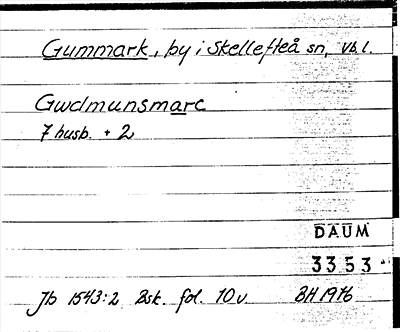 Gummark, by i Skellefteå sn, Vb l.
Gwdmunsmarc
7 husb. + 2
DAUM
3353
Jb 1543:2 Bsk. fol. 10 v. BH 1976